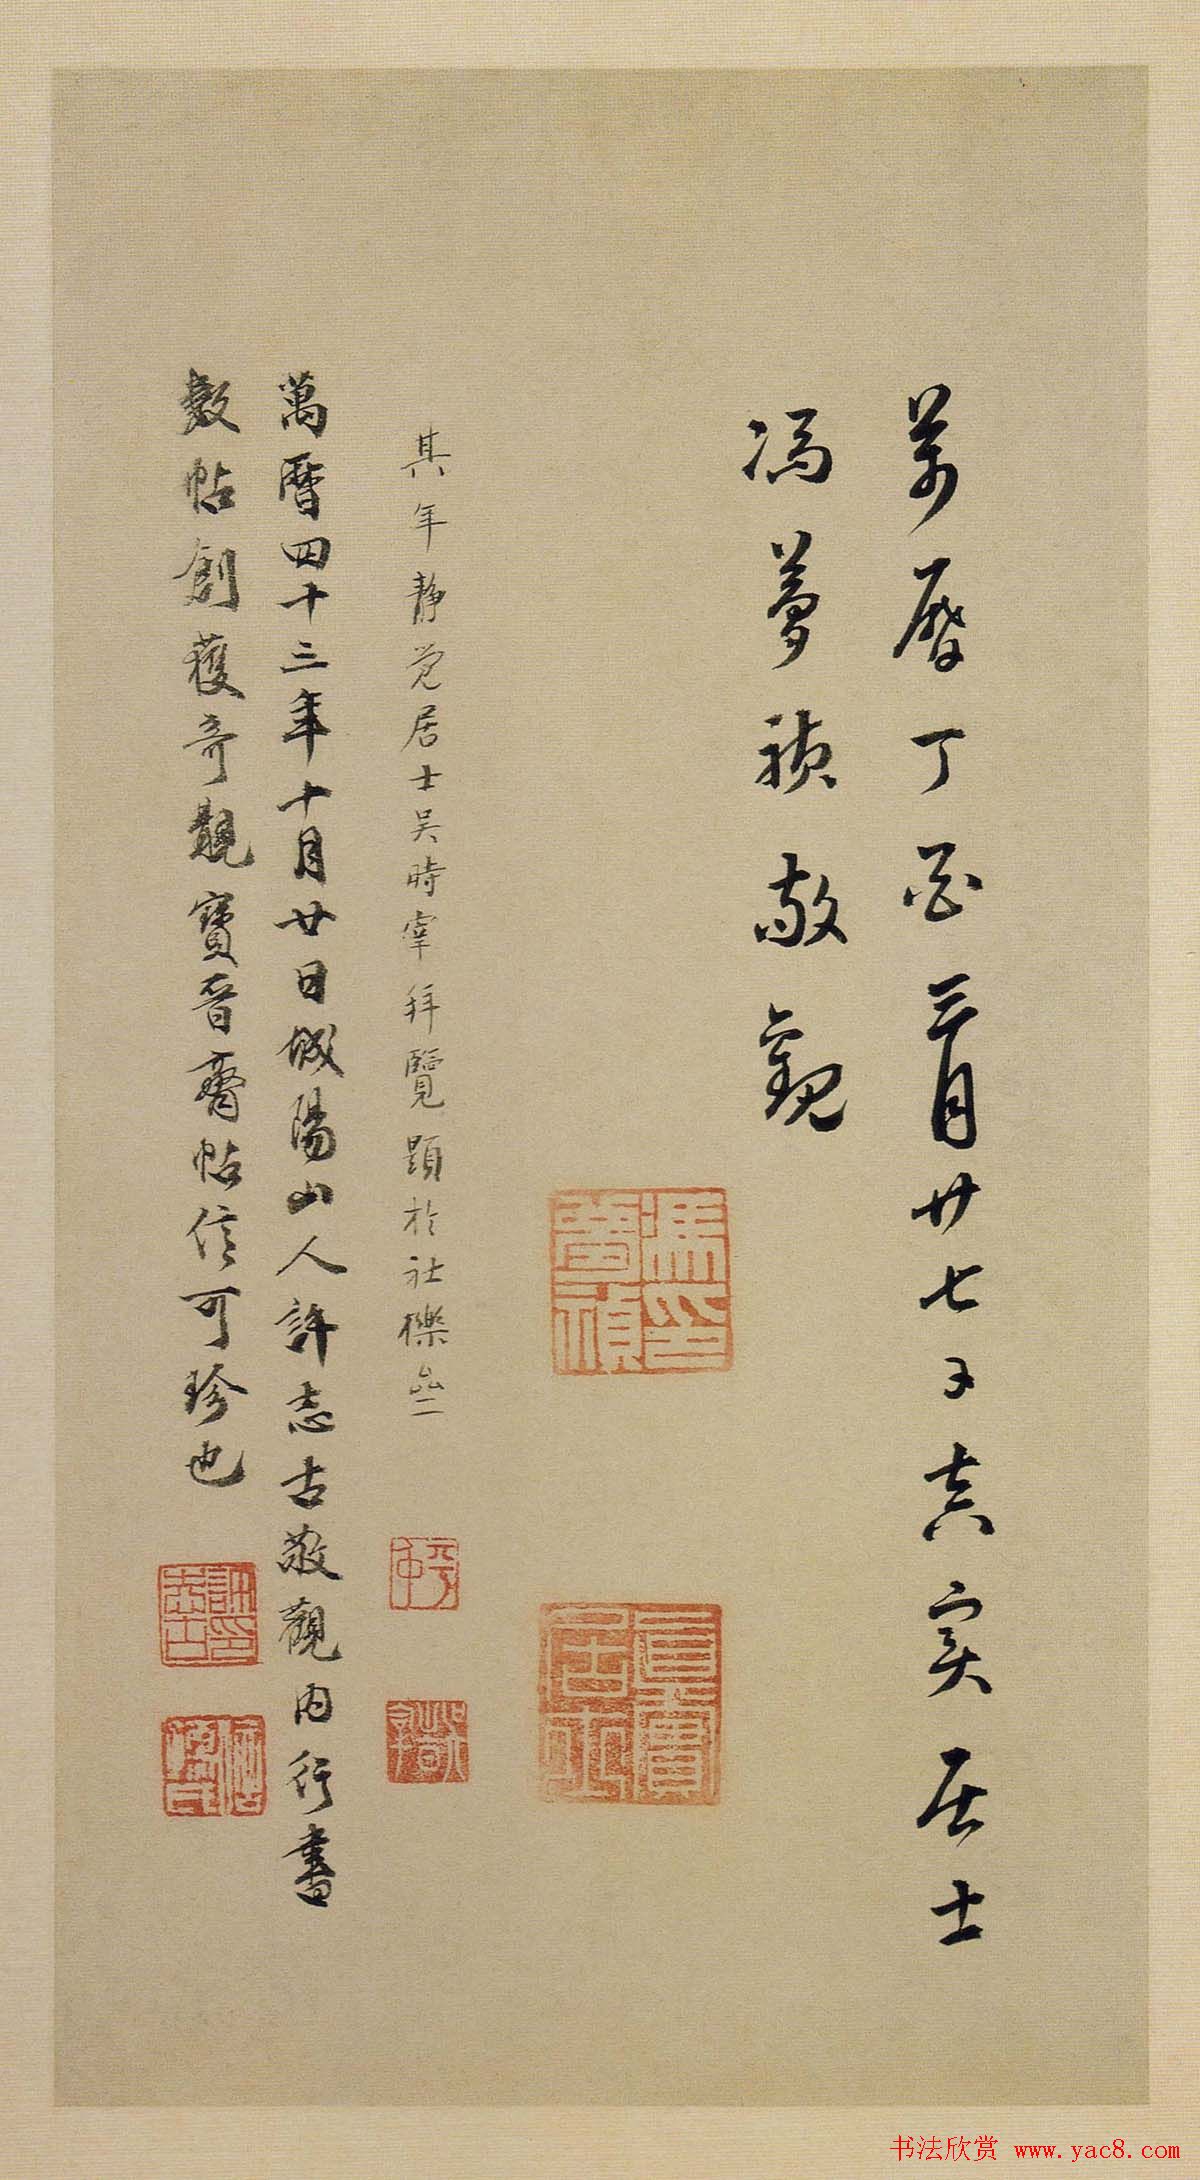 萬曆丁酉三月廿七日真實居士
馮夢禎敬觀
馮印夢禎
真實居士
其年靜覺居士吳時宰拜覽題於社櫟
萬曆四十三年十月廿日城陽山人許志古敬觀內行書
數帖創獲奇觀寶晉齋帖信可珍也
許印志古
书法欣赏 www.yac8.com